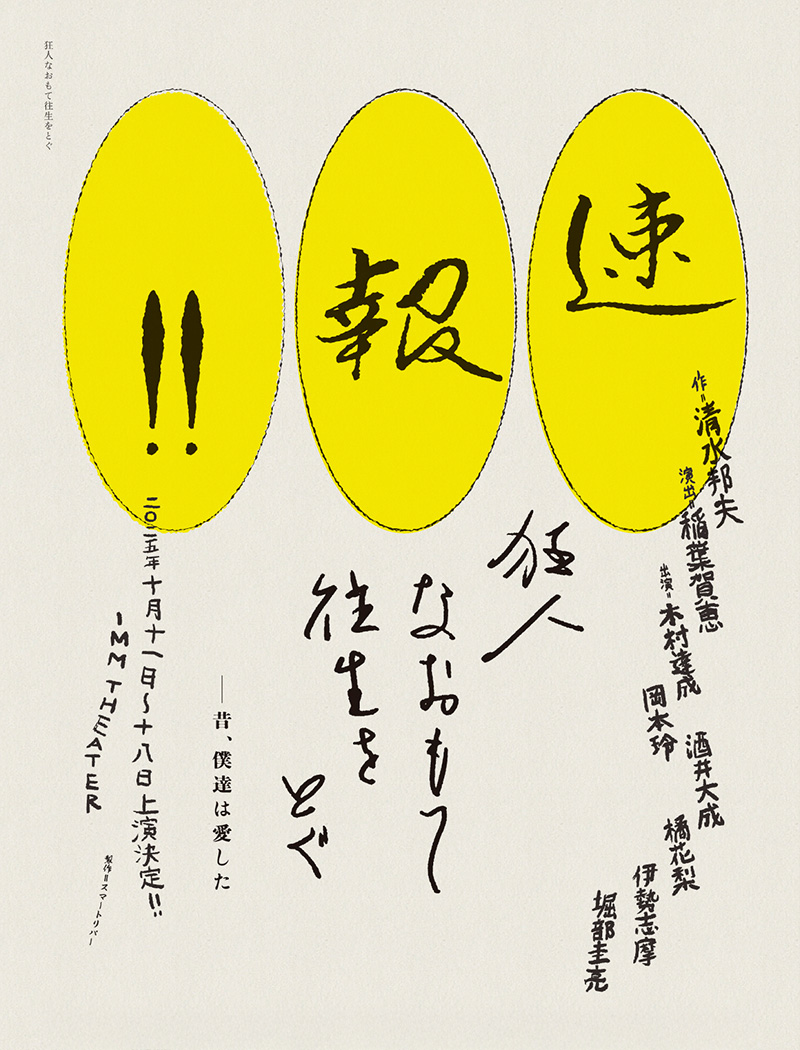 速
報
!!
作=清水邦夫
演出=稲葉賀恵
出演=木村達成
岡本玲
酒井大成
橘花梨
伊勢志摩
堀部圭亮
狂人
なおもて
往生を
とぐ
——昔、僕達は愛した
二〇二五年十月十一日〜十八日上演決定!!
IMM THEATER
製作=スマートリバー
狂人なおもて往生をとぐ